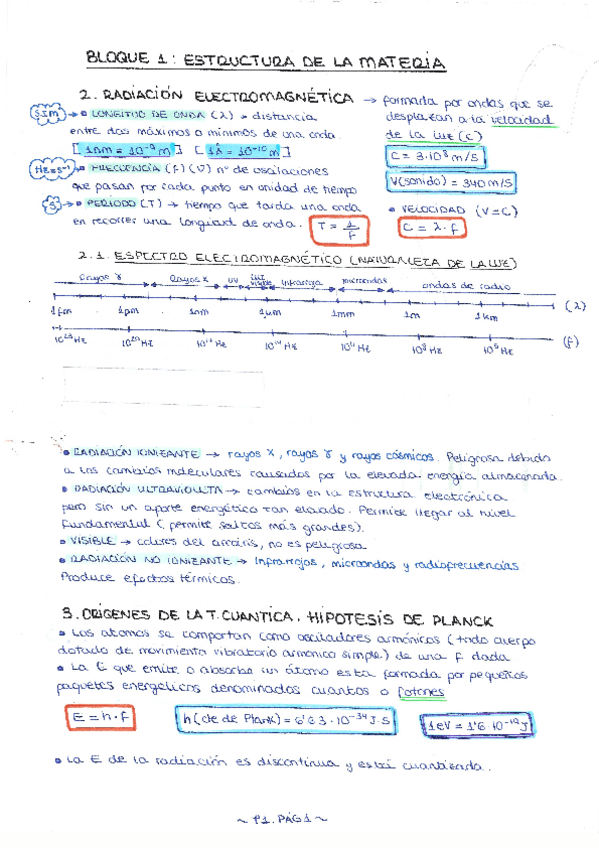 BLOQUE 1: ESTRUCTURA DE LA MATERIA
2. RADIACIÓN ELECTROMAGNÉTICA → formada por ondas que se
desplazan a la velocidad
de la luz (c)
S.I m → • LONGITUD DE ONDA (λ) → distancia
entre dos máximos o mínimos de una onda.
[1nm = 10⁻⁹ m] [1Å = 10⁻¹⁰ m]
C = 3·10⁸ m/s
Hz = s⁻¹ → • FRECUENCIA (f) (ν) nº de oscilaciones
que pasan por cada punto en unidad de tiempo
V(sonido) = 340 m/s
S → • PERIODO (T) → tiempo que tarda una onda
en recorrer una longitud de onda. T = 1/f
• VELOCIDAD (V=C)
C = λ·f
2.1. ESPECTRO ELECTROMAGNÉTICO (NATURALEZA DE LA LUZ)
Rayos γ Rayos x UV luz visible Infrarroja microondas ondas de radio
1fm 1pm 1nm 1μm 1mm 1m 1km (λ)
10²³Hz 10²⁰Hz 10¹⁴Hz 10¹¹Hz 10⁸Hz 10⁵Hz (f)
• RADIACIÓN IONIZANTE → rayos x, rayos γ y rayos cósmicos. Peligrosa debido
a los cambios moleculares causados por la elevada energía almacenada.
• RADIACIÓN ULTRAVIOLETA → cambios en la estructura electrónica
pero sin un aporte energético tan elevado. Permite llegar al nivel
fundamental (permite saltos más grandes).
• VISIBLE → colores del arcoiris, no es peligrosa
• RADIACIÓN NO IONIZANTE → Infrarrojos, microondas y radiofrecuencias
Produce efectos térmicos.
3. ORÍGENES DE LA T. CUÁNTICA. HIPÓTESIS DE PLANCK
• Los átomos se comportan como osciladores armónicos (todo cuerpo
dotado de movimiento vibratorio armónico simple) de una f dada
• La E que emite o absorbe un átomo está formada por pequeños
paquetes energéticos denominados cuantos o fotones
E = h·f h (cte de Plank) = 6'63·10⁻³⁴ J·s 1eV = 1'6·10⁻¹⁹ J
• La E de la radiación es discontinua y está cuantizada.
~ T1. PÁG 1 ~